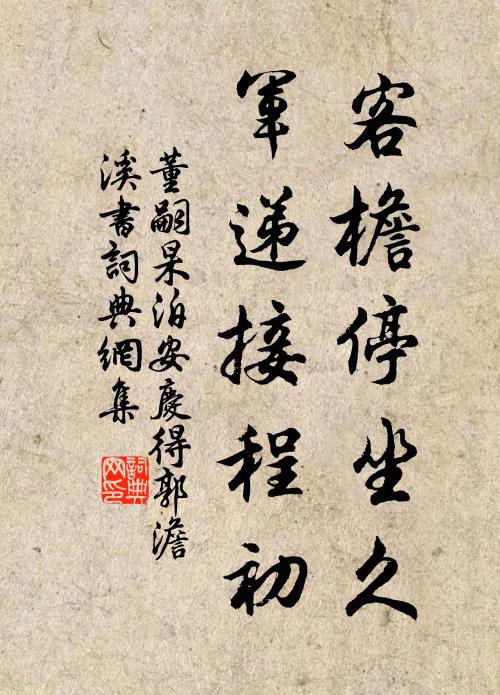 客檐停坐久
軍递接程初
董嗣杲泊安慶得郭澹
溪書詞典網集
詞典网印